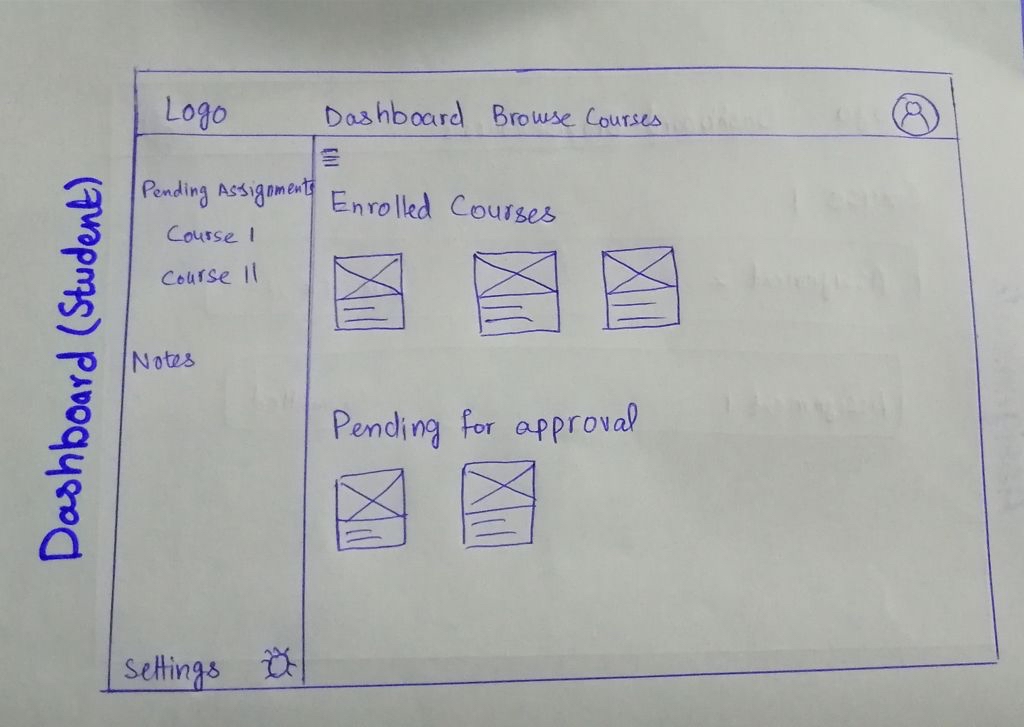 Dashboard (Student)
Logo
Dashboard Browse Courses
Pending Assignments
Course I
Course II
Notes
Settings
Enrolled Courses
Pending for approval